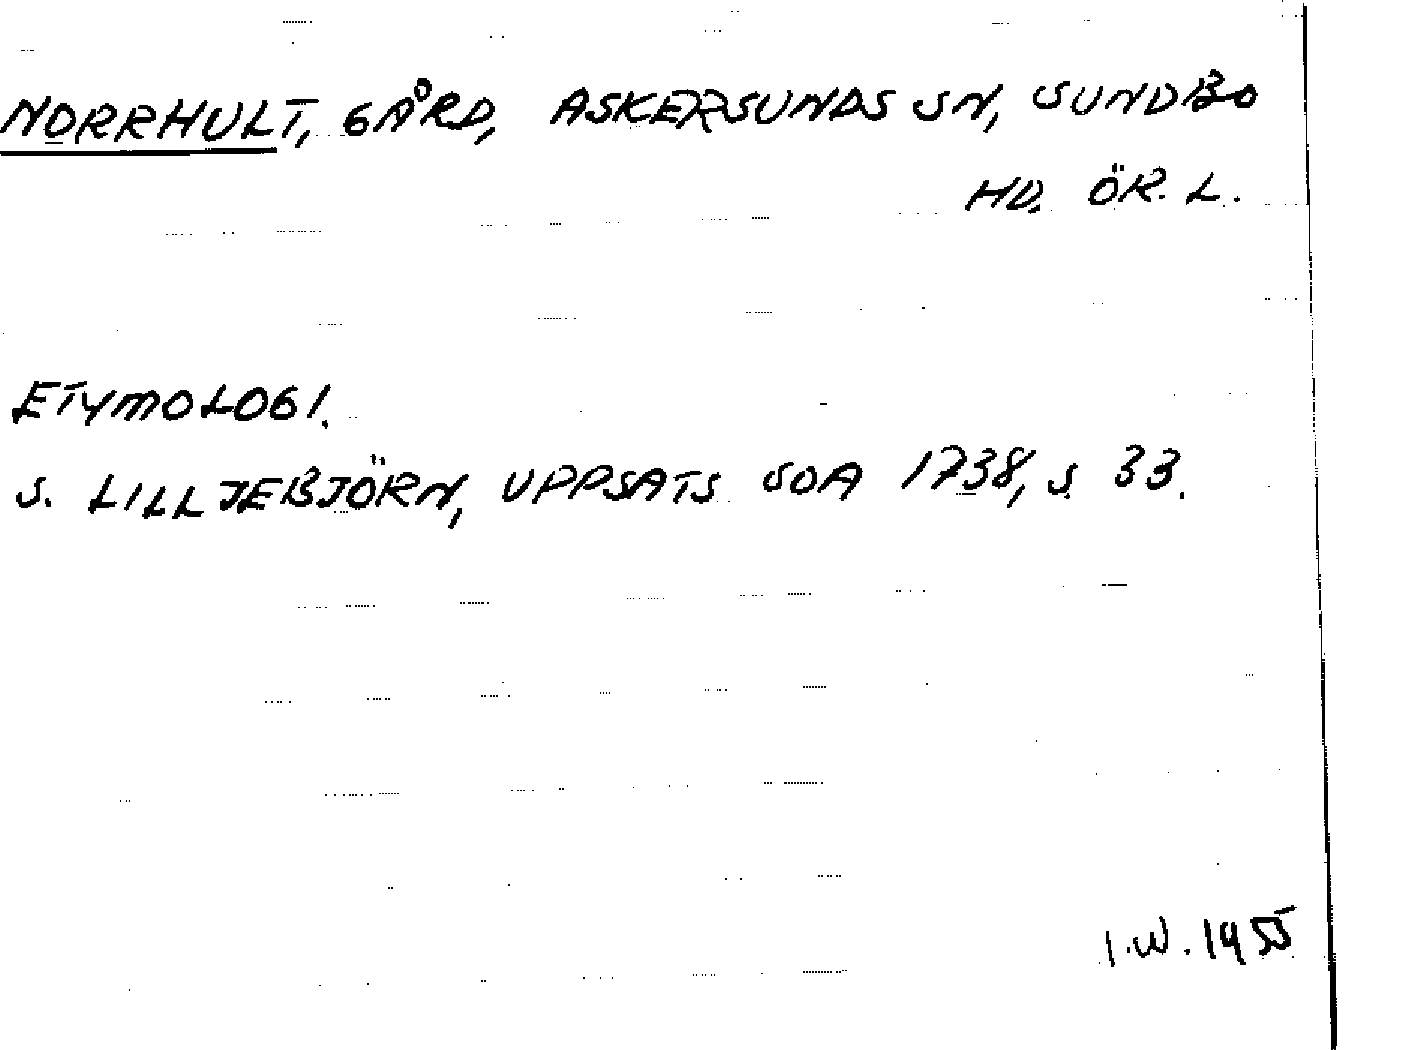 NORRHULT, GÅRD, ASKERSUNDS SN, SUNDBO
HD. ÖR. L.
ETYMOLOGI.
S. LILLJEBJÖRN, UPPSATS SOA 1738, S. 33.
I.W. 1955